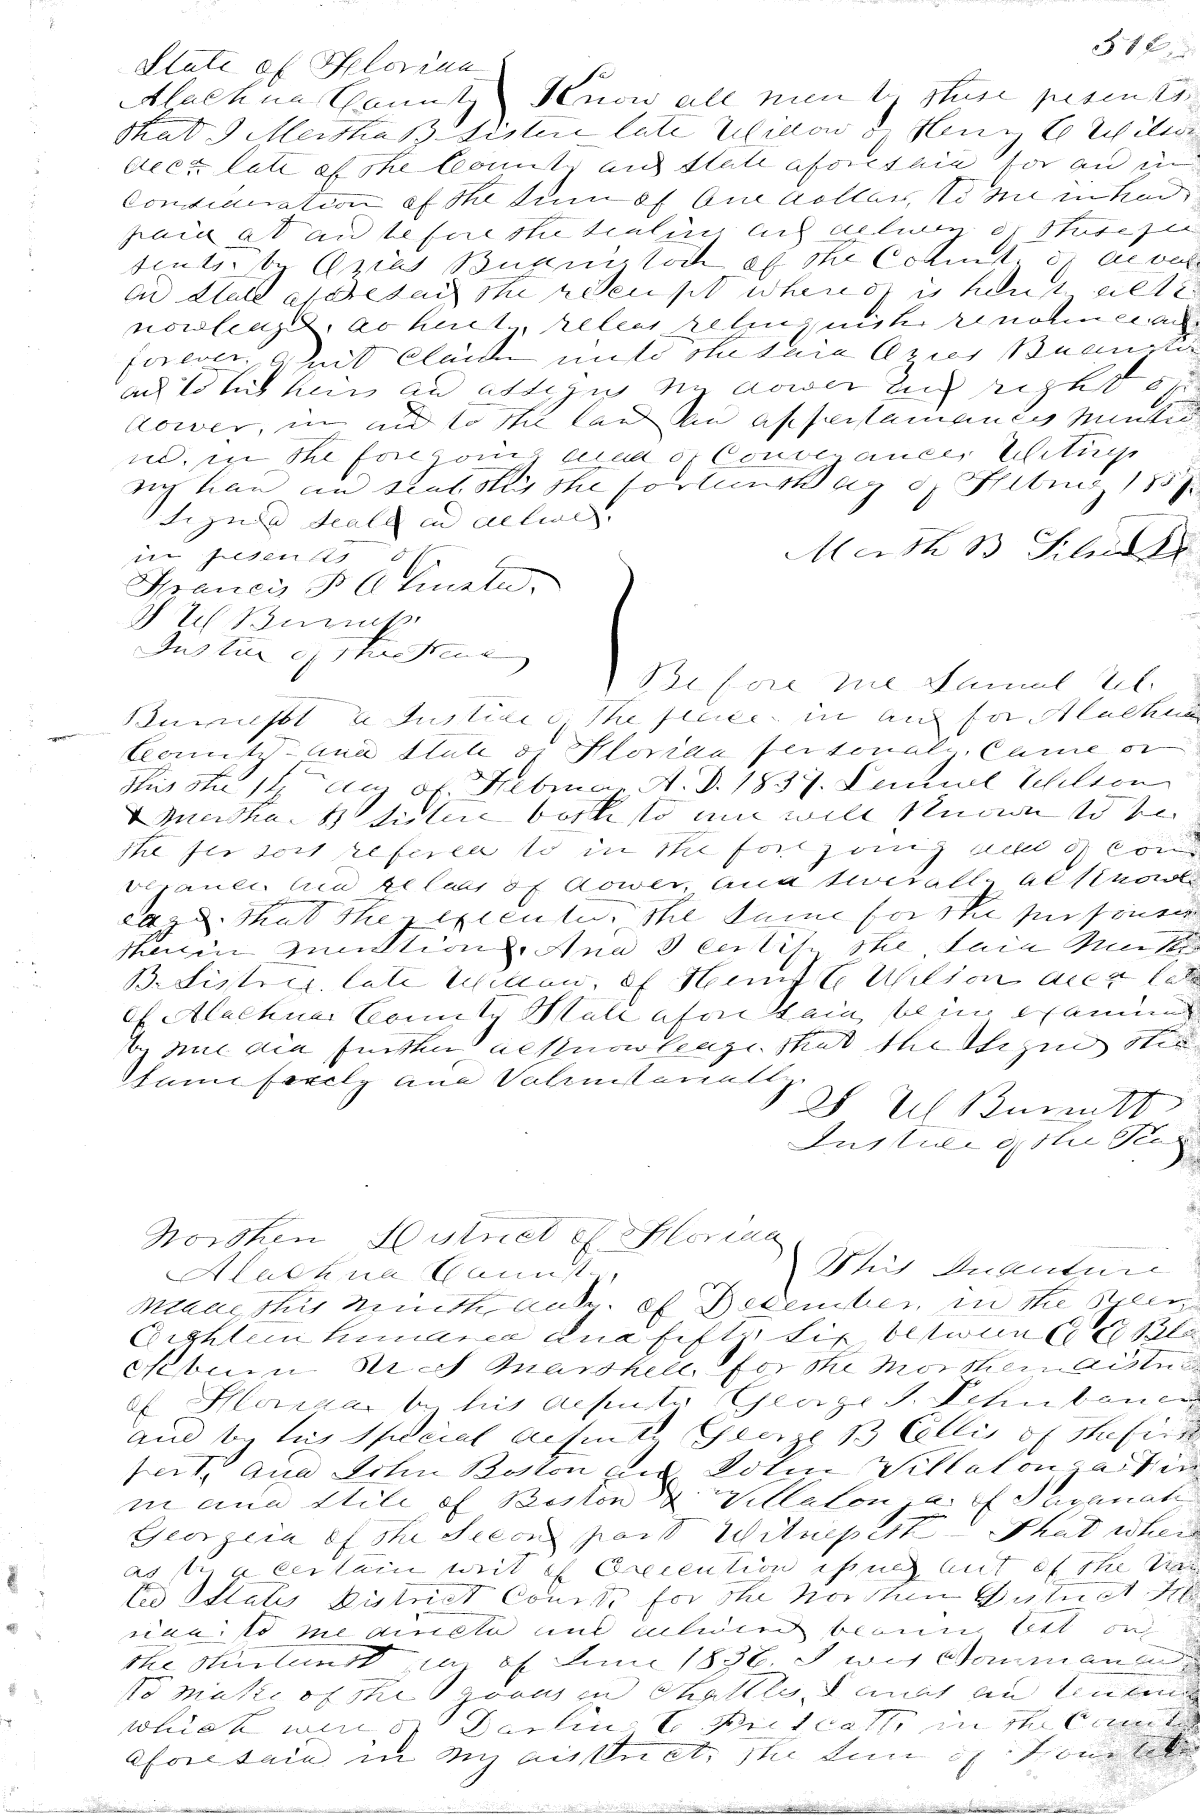 State of Florida
Alachua County Know all men by these pesents
that I Mertha B Sistere late Widow of Henry C Wilson
decd late of the County and State aforesaid for and in
consideration of the Sum of One dollar, to me in hand
paid at and before the sealing and delivery of these pre
sents, by Ozias Budington of the County of
and State aforesaid the receipt where of is hereby ack
nowledged, do hereby, releas relinquish renounce and
forever, quit Claim unto the said Ozias Budington
and to his heirs and assigns my dower and right of
dower, in and to the land and appertainances mentio
ned, in the foregoing deed of Conveyance, Witness
my hand and seal, this the forteenth day of Februy 185
Signed seald and deliverd.
in pesents of.
Francis P
S W Burness
Justice of the Peace
Before me Samuel W.
a Justice of the peace in and for Alachua
County and State of Florida personaly, Came on
this the 14 day of Februay A. D. 1857. Lemuel Wilson
& Mertha B Sistere both to me well Known to be
the persons refered to in the foregoing deed of con
veyance and releas of dower, and severally acknowl
edged. that they executed, the Same for the purposes
therein mentioned. And I certify the Said Mertha
B. Sistere, late Widow, of Henry C Wilson decd late
of Alachua County State aforesaid, being examined
by me did further acknowledge that she Signed the
Same freely and Voluntarially.
S W Burnett
Justice of the Peace
Northen District of Florida
Alachua County, This Indenture
made this ninth day of December, in the Year
Eighteen hundred and fifty Six between E E Bla
ckburn U S Marshell for the Northern distric
of Florida by his deputy George J. Zehnbauer
and by his special deputy George B Ellis of the first
part, and John Boston and John Villalonga Fir
m and Stile of Boston & Villalonga of Savanah
Georgia of the Second part Witnesseth - That where
as by a certain writ of Execution issued out of the Uni
ted States District Court, for the Northen District Flo
rida: to me directed and delivered bearing test on
the thirteenth day of June 1856. I was Commanded
to make of the goods and Chattles, Lands and tenem
which were of Darlin C Prescott, in the County
aforesaid in my district, the Sum of